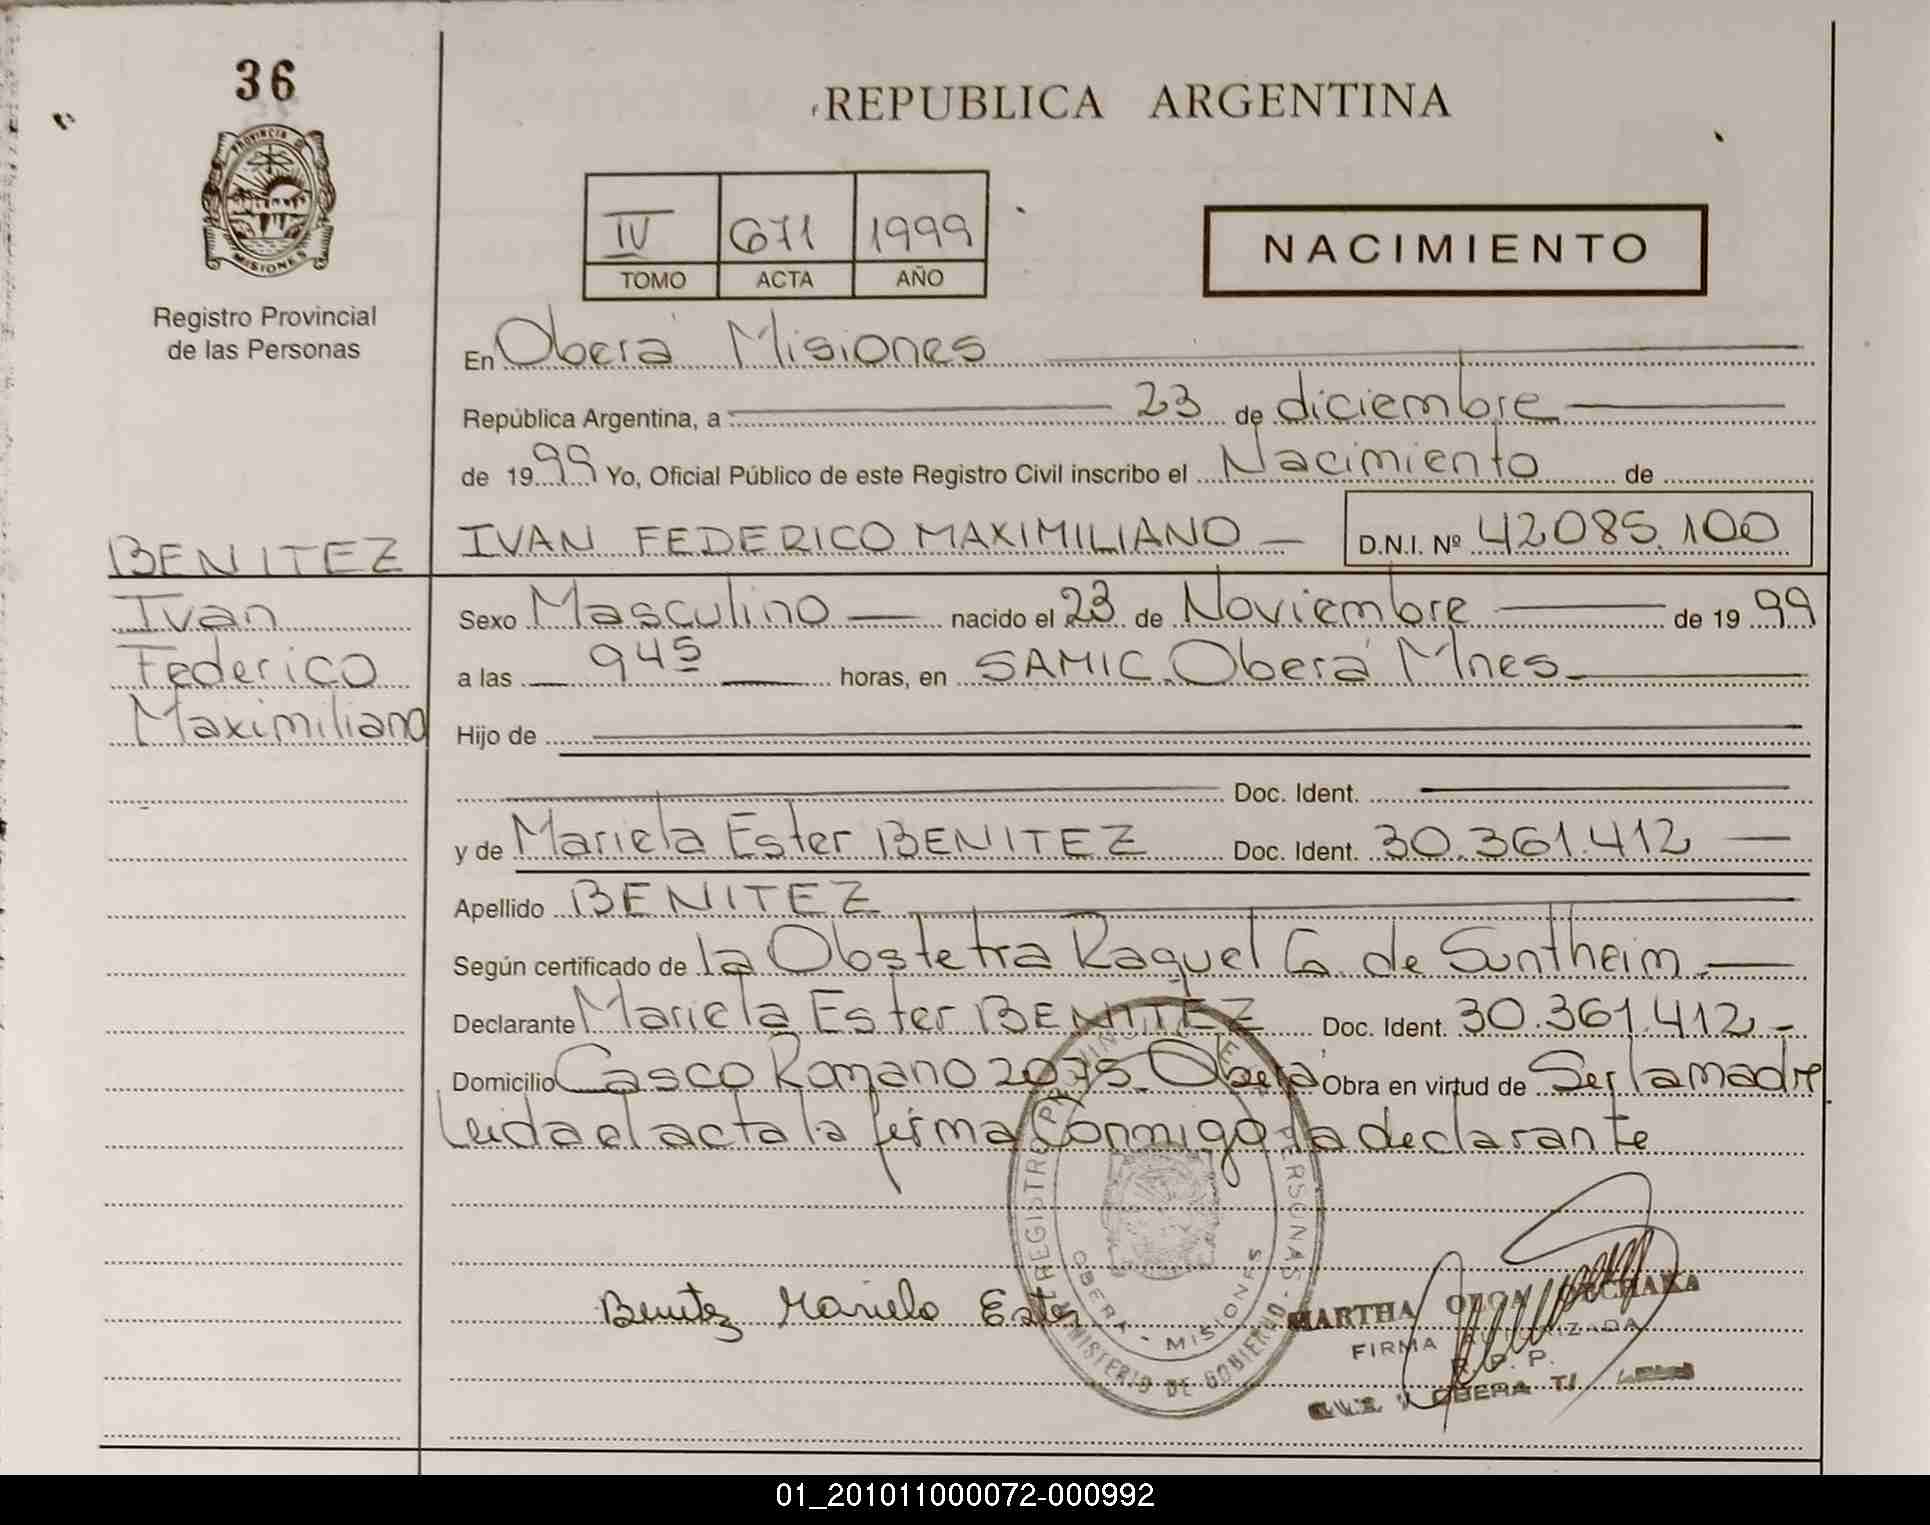 36
PROVINCIA DE
MISIONES
Registro Provincial
de las Personas
REPUBLICA ARGENTINA
IV 671 1999
TOMO ACTA AÑO
NACIMIENTO
En Oberá Misiones
República Argentina, a 23 de diciembre
de 1999 Yo, Oficial Público de este Registro Civil inscribo el Nacimiento de
BENITEZ IVAN FEDERICO MAXIMILIANO D.N.I. Nº 42085.100
Ivan Sexo Masculino nacido el 23 de Noviembre de 1999
Federico a las 945 horas, en SAMIC. Oberá Mnes
Maximiliano Hijo de
Doc. Ident.
y de Mariela Ester BENITEZ Doc. Ident. 30.361.412
Apellido BENITEZ
Según certificado de la Obstetra Raquel G. de Suntheim
Declarante Mariela Ester BENITEZ Doc. Ident. 30.361.412
Domicilio Casco Romano 2075. Oberá Obra en virtud de Ser la madre
Leida el acta la firma Conmigo la declarante
REGISTRO PROVINCIAL DE PERSONAS
OBERA - MISIONES
MINISTERIO DE GOBIERNO
Benitez Mariela Ester
MARTHA OLGA
FIRMA AUTORIZADA
R. P. P.
OBERA
01_201011000072-000992